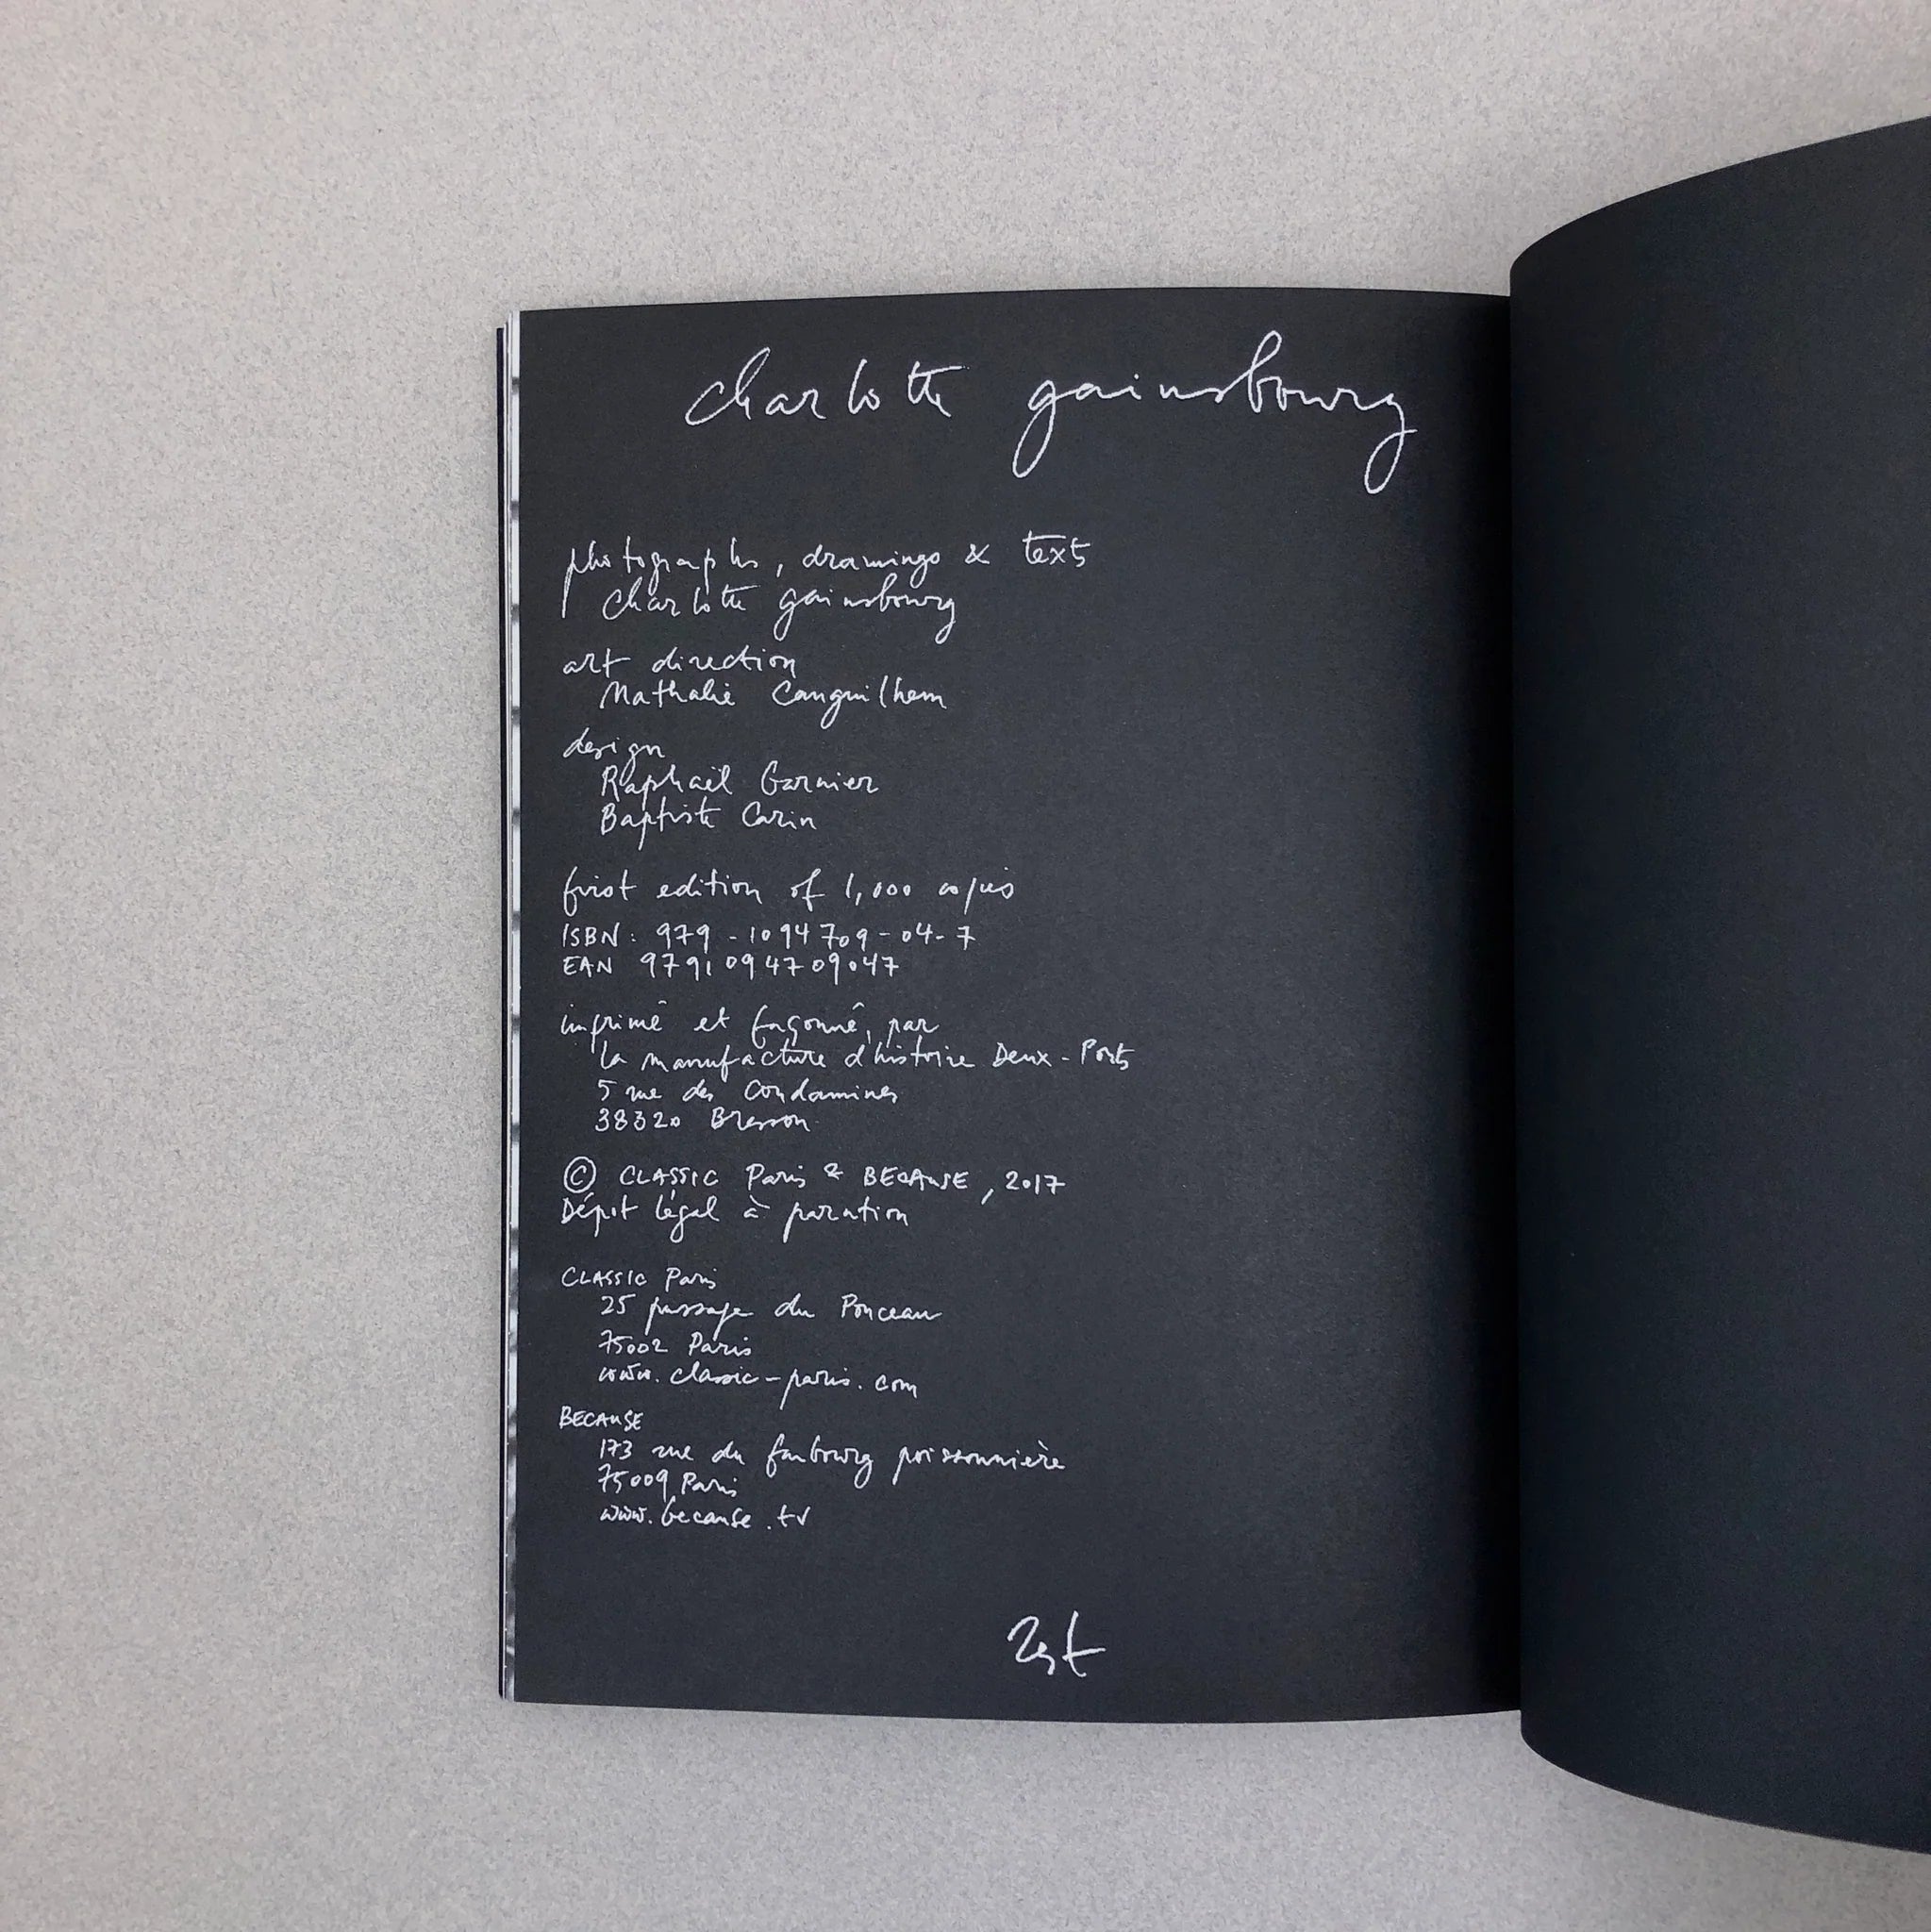 charlotte gainsbourg
photographs, drawings & text
charlotte gainsbourg
art direction
Nathalie Canguilhem
design
Raphaël Garnier
Baptiste Carin
first edition of 1,000 copies
ISBN: 979-1094709-04-7
EAN 9791094709047
imprimé et façonné, par
la manufacture d'histoire Deux-Ponts
5 rue des Condamines
38320 Bresson
© CLASSIC Paris & BECAUSE, 2017
Dépot légal à parution
CLASSIC Paris
25 passage du Ponceau
75002 Paris
www.classic-paris.com
BECAUSE
173 rue du faubourg poissonnière
75009 Paris
www.because.tv